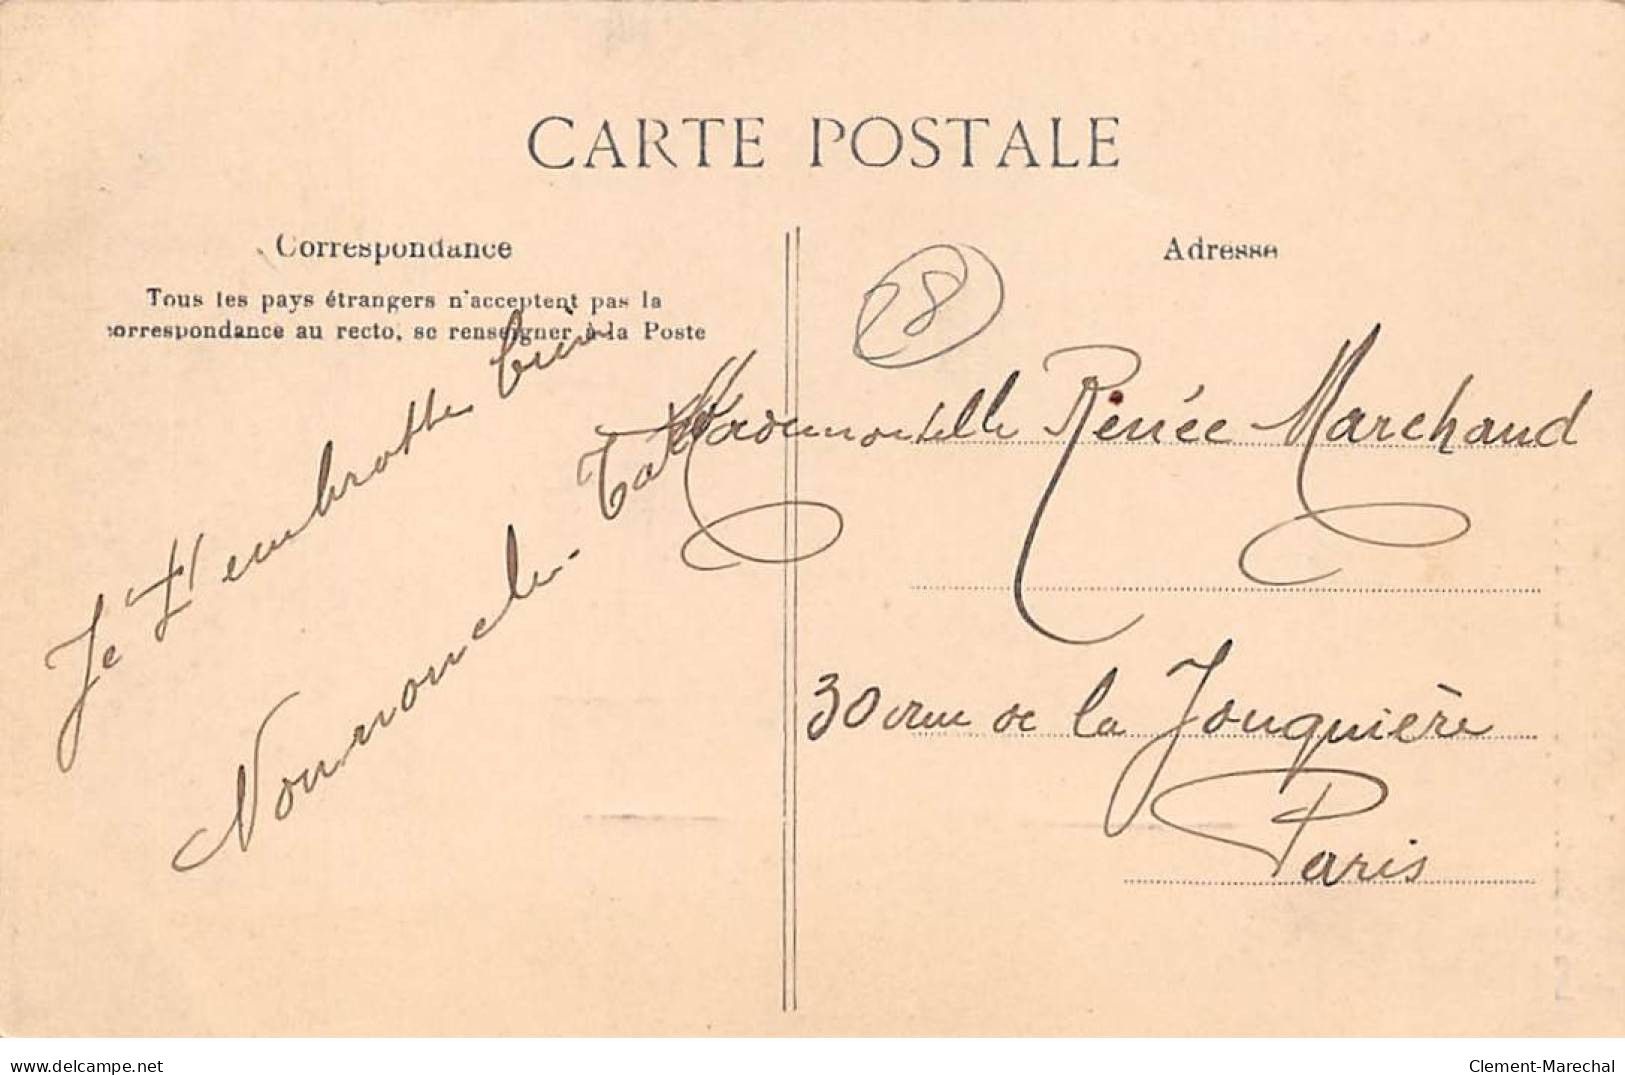 CARTE POSTALE
Correspondance
Tous les pays étrangers n'acceptent pas la
correspondance au recto, se renseigner à la Poste
Je t'embrotte bien
Adresse
8
Mademoiselle Renée Marchand
30 rue de la Jonquière
Paris
www.delcampe.net
Clement-Marechal